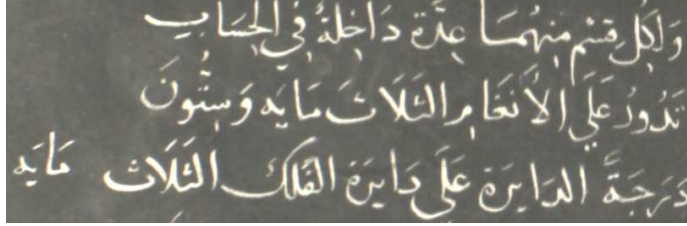 وَلِكُلِ قسْمٍ مِنهُمَا عِدَّة دَاخِلَةُ فِي الحِسَابِ
تَدُورُ عَلَي الأَنغَامِ الثَلَاثَ مَايَه وَسِتُّونَ
دَرَجَةً الدَايرَة عَلَي دَايرَة الفَلَك الثَلَاث مَايَه